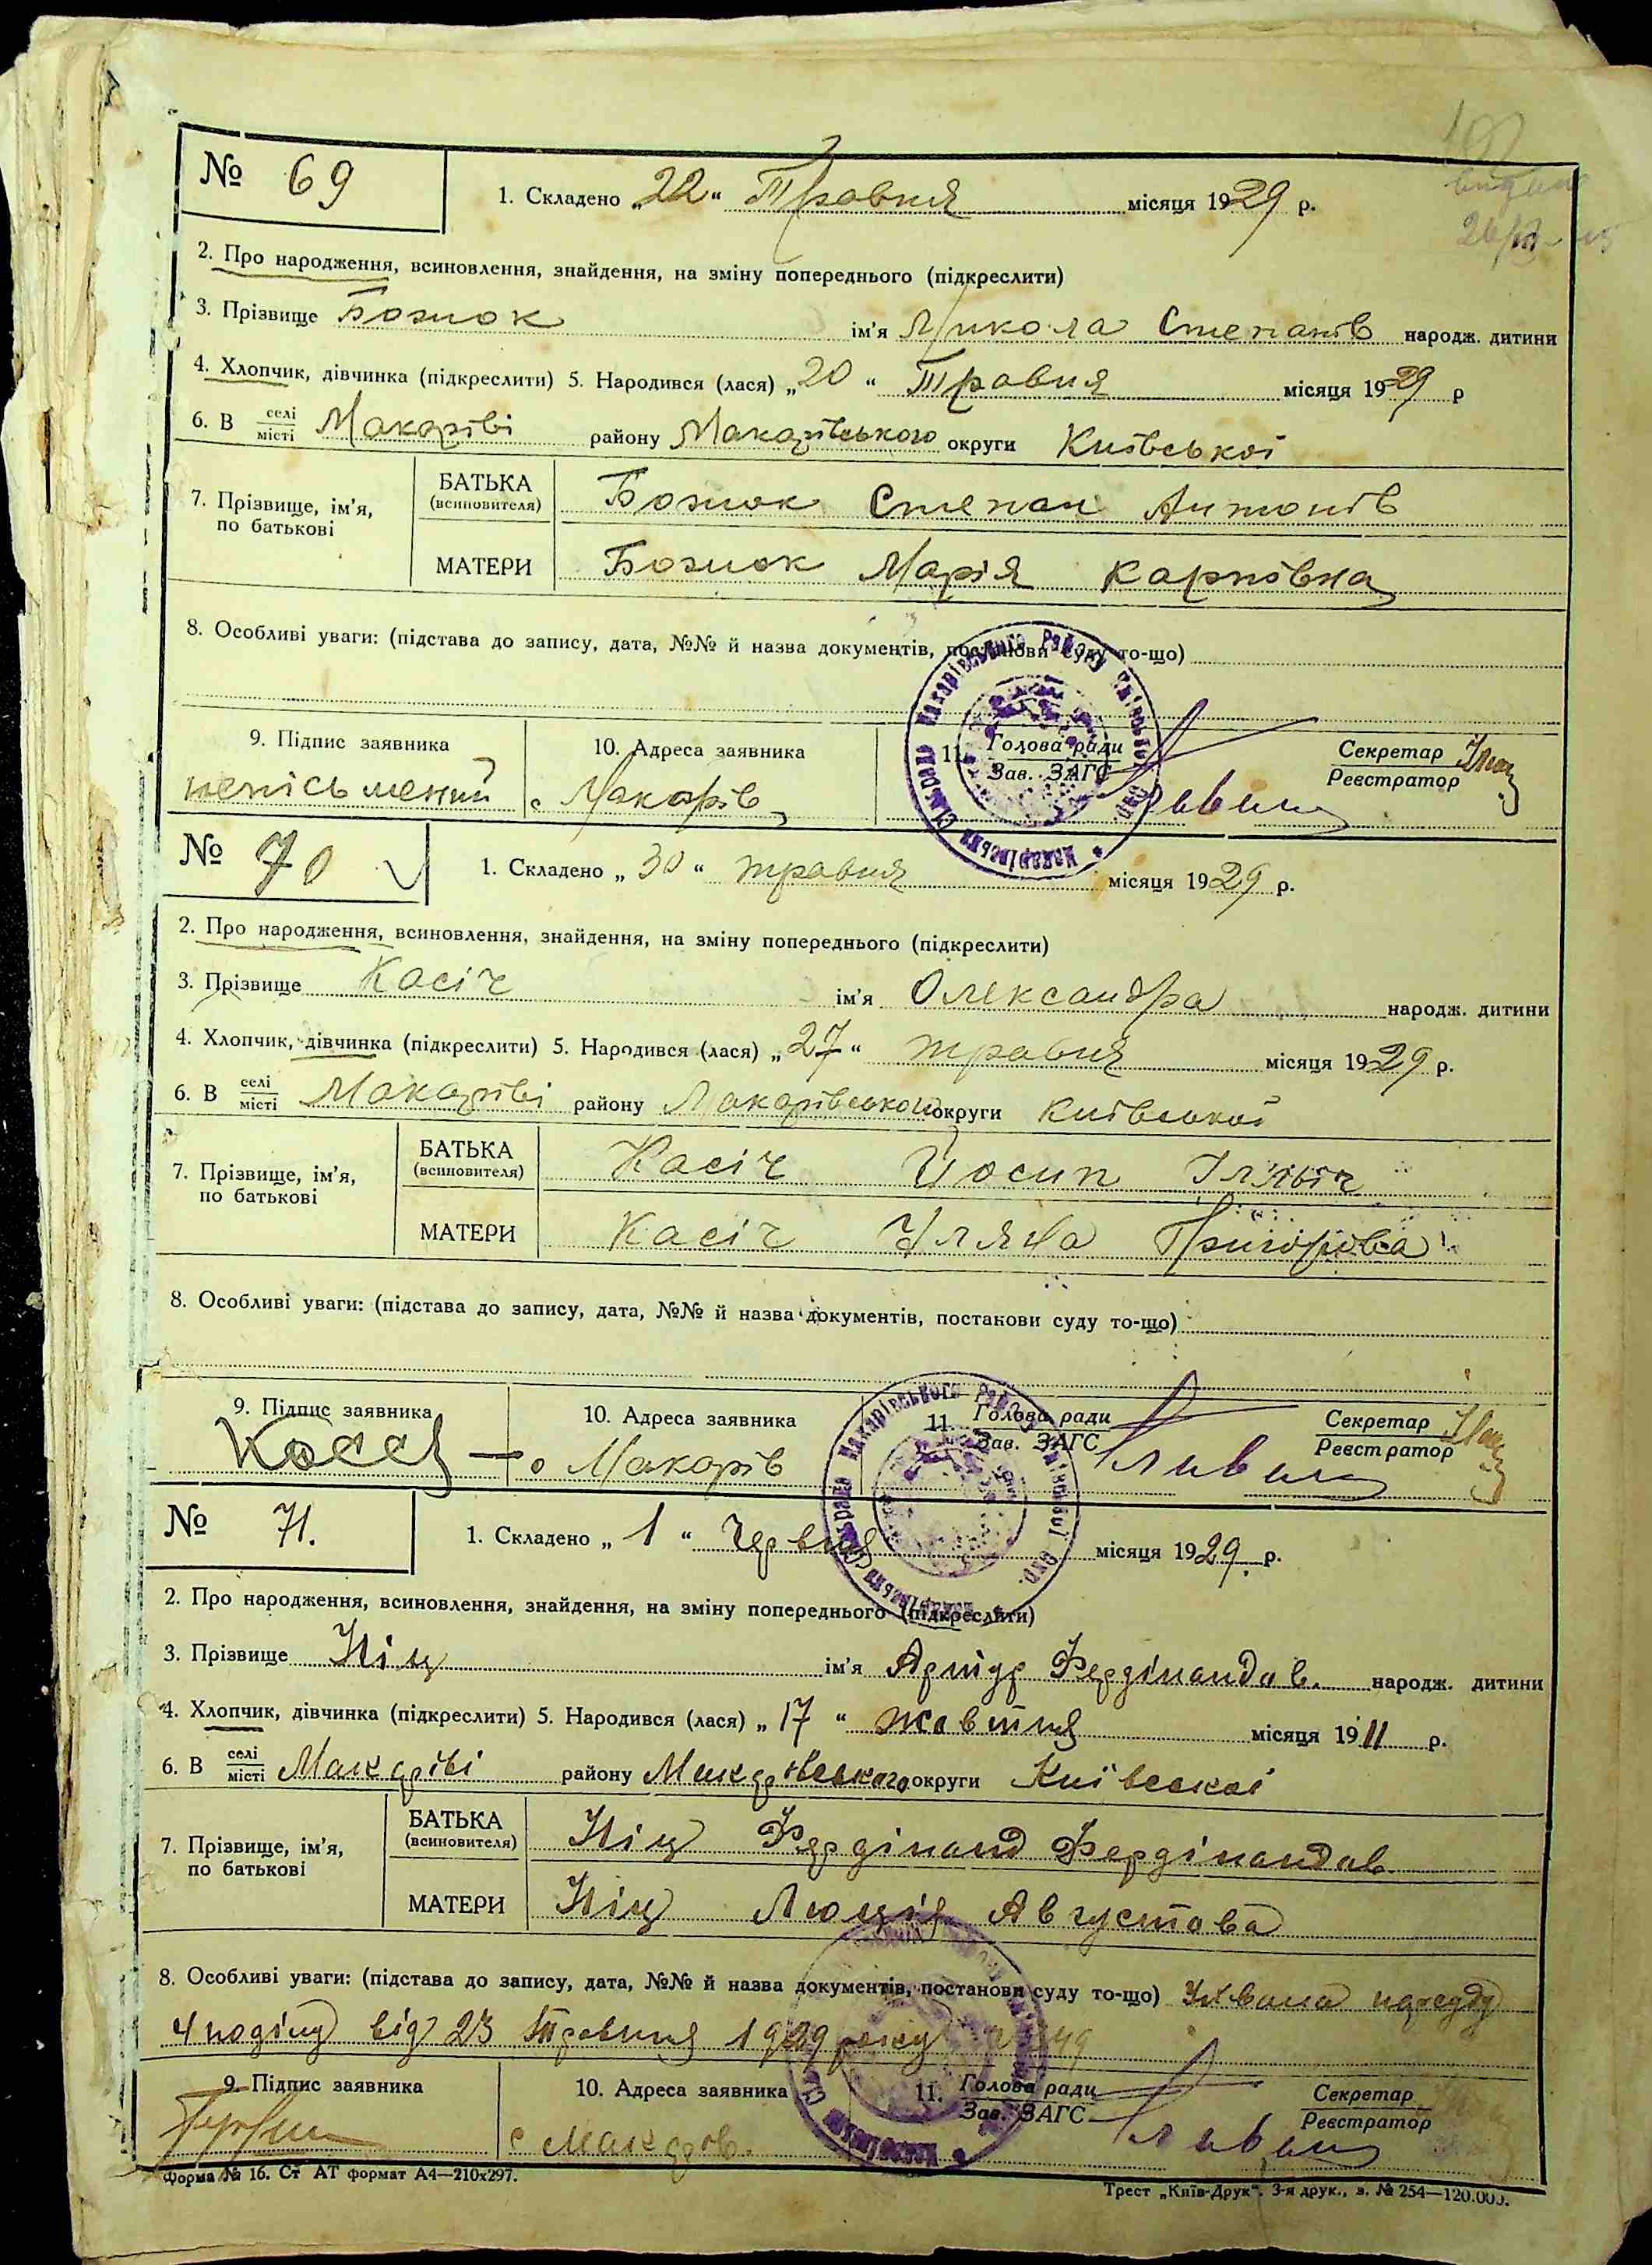 № 69
1. Складено „22“ Травня місяця 1929 р.
2. Про народження, всиновлення, знайдення, на зміну попереднього (підкреслити)
3. Прізвище Бозиок ім'я Микола Степанів народж. дитини
4. Хлопчик, дівчинка (підкреслити) 5. Народився (лася) „20“ Травня місяця 1929 р
6. В селі/місті Макарiві району Макарівського округи Київської
7. Прізвище, ім'я, по батькові
БАТЬКА (всиновителя) Бозиок Степан Антонів
МАТЕРИ Бозиок Марія Карпівна
8. Особливі уваги: (підстава до запису, дата, №№ й назва документів, постанови суду то-що)
9. Підпис заявника
неписьменний
10. Адреса заявника
с Макарів
11. Голова ради
Зав. ЗАГС
Секретар
Реєстратор
№ 70
1. Складено „30“ травня місяця 1929 р.
2. Про народження, всиновлення, знайдення, на зміну попереднього (підкреслити)
3. Прізвище Касіч ім'я Олександра народж. дитини
4. Хлопчик, дівчинка (підкреслити) 5. Народився (лася) „27“ травня місяця 1929 р.
6. В селі/місті Макаріві району Макарівського округи Київської
7. Прізвище, ім'я, по батькові
БАТЬКА (всиновителя) Касіч Йосип Ілліч
МАТЕРИ Касіч Уляна Григорова
8. Особливі уваги: (підстава до запису, дата, №№ й назва документів, постанови суду то-що)
9. Підпис заявника
10. Адреса заявника
с Макарів
11. Голова ради
Зав. ЗАГС
Секретар
Реєстратор
№ 71.
1. Складено „1“ Червня місяця 1929 р.
2. Про народження, всиновлення, знайдення, на зміну попереднього (підкреслити)
3. Прізвище Ніц ім'я Артур Фердінандов. народж. дитини
4. Хлопчик, дівчинка (підкреслити) 5. Народився (лася) „17“ жовтня місяця 1911 р.
6. В селі/місті Макаріві району Макарівського округи Київської
7. Прізвище, ім'я, по батькові
БАТЬКА (всиновителя) Ніц Фердінанд Фердінандов.
МАТЕРИ Ніц Люція Августова
8. Особливі уваги: (підстава до запису, дата, №№ й назва документів, постанови суду то-що)
від 23 Травня 1929 року
9. Підпис заявника
10. Адреса заявника
с Макарів.
11. Голова ради
Зав. ЗАГС
Секретар
Реєстратор
Форма № 16. Ст АТ формат А4—210х297.
Трест „Київ-Друк“. 3-я друк., з. № 254—120.000.